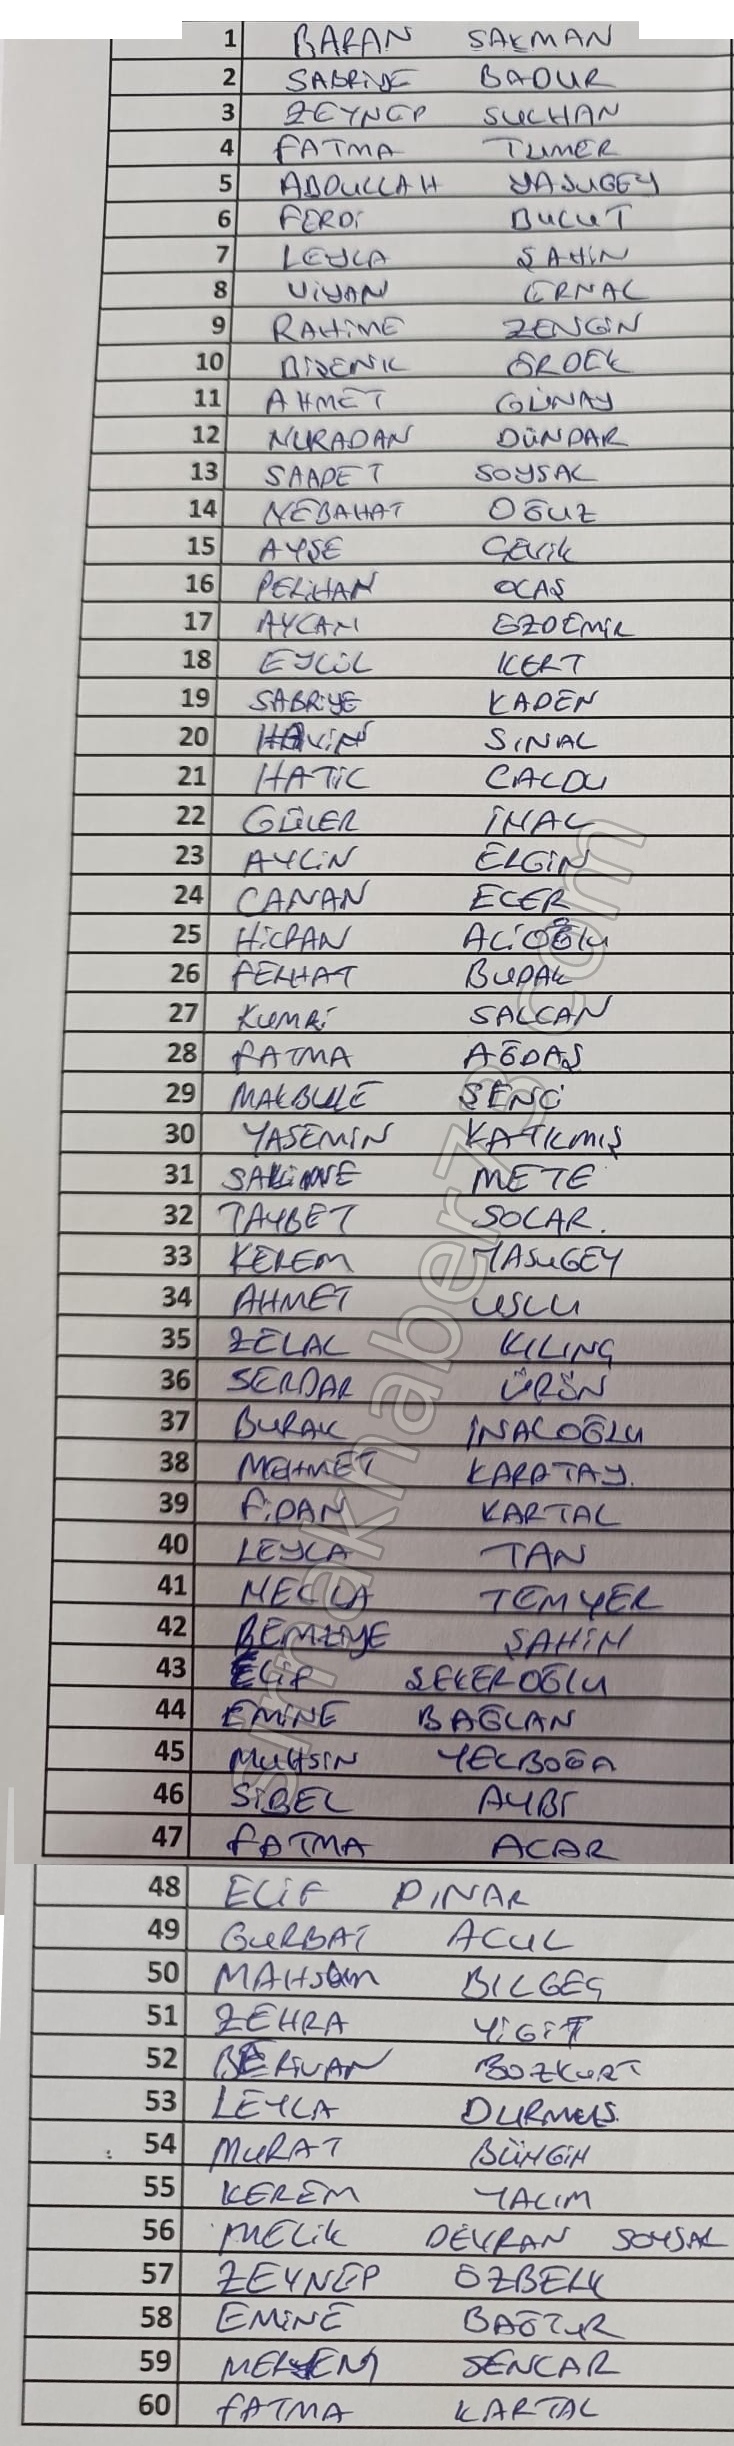 1 BARAN SAKMAN
2 SABRİYE BADUR
3 ZEYNEP SULHAN
4 FATMA TUMER
5 ABDULLAH YASUGEY
6 FERDİ BULUT
7 LEYLA ŞAHİN
8 VİYAN ERNAL
9 RAHİME ZENGİN
10 ÖRDEK
11 AHMET GÜNAY
12 NURADAN DÜNDAR
13 SAADET SOYSAL
14 NEBAHAT OĞUZ
15 AYŞE ÇEVİK
16 PELİHAN OLAŞ
17 AYCAN EZDEMİR
18 EYLÜL KERT
19 SABRİYE KADEN
20 SINAL
21 HATİC CALDU
22 GÜLER İNAL
23 AYLİN ELGİN
24 CANAN ECER
25 HİCRAN ALİOĞLU
26 FERHAT BUDAK
27 KUMRİ SALCAN
28 FATMA AĞDAŞ
29 MAKBULE ŞENCİ
30 YASEMİN KATKMIŞ
31 METE
32 TAYBET SOLAR.
33 KEREM YASUGEY
34 AHMET USLU
35 ZELAL KILINÇ
36 SERDAR ÜRÜN
37 BURAK İNALOĞLU
38 MEHMET KARATAY.
39 FİDAN KARTAL
40 LEYLA TAN
41 NECLA TEMYER
42 ŞAHİN
43 ELİF ŞEKEROĞLU
44 EMİNE BAĞLAN
45 MUHSİN YELBOĞA
46 SİBEL AYBİ
47 FATMA ACAR
48 ELİF PINAR
49 GURBAT ACUL
50 BILGEÇ
51 ZEHRA YİGİT
52 BERİVAN BOZKURT
53 LEYLA DURMUS.
54 MURAT BÜNGİN
55 KEREM YALIM
56 MELİK DEVRAN SOYSAL
57 ZEYNEP ÖZBEK
58 EMİNE BAĞTUR
59 MERYEM SENCAR
60 FATMA KARTAL
sirnakhaber73.com